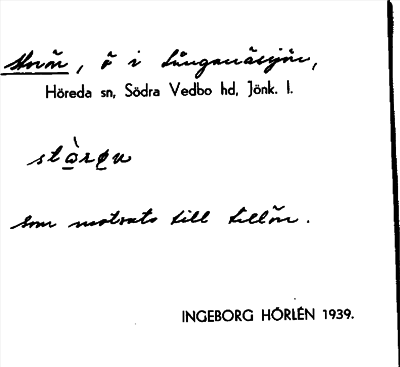 Storön, ö i Långanäsjön,
Höreda sn, Södra Vedbo hd, Jönk. l.
som motsats till Lillön.
INGEBORG HÖRLÉN 1939.